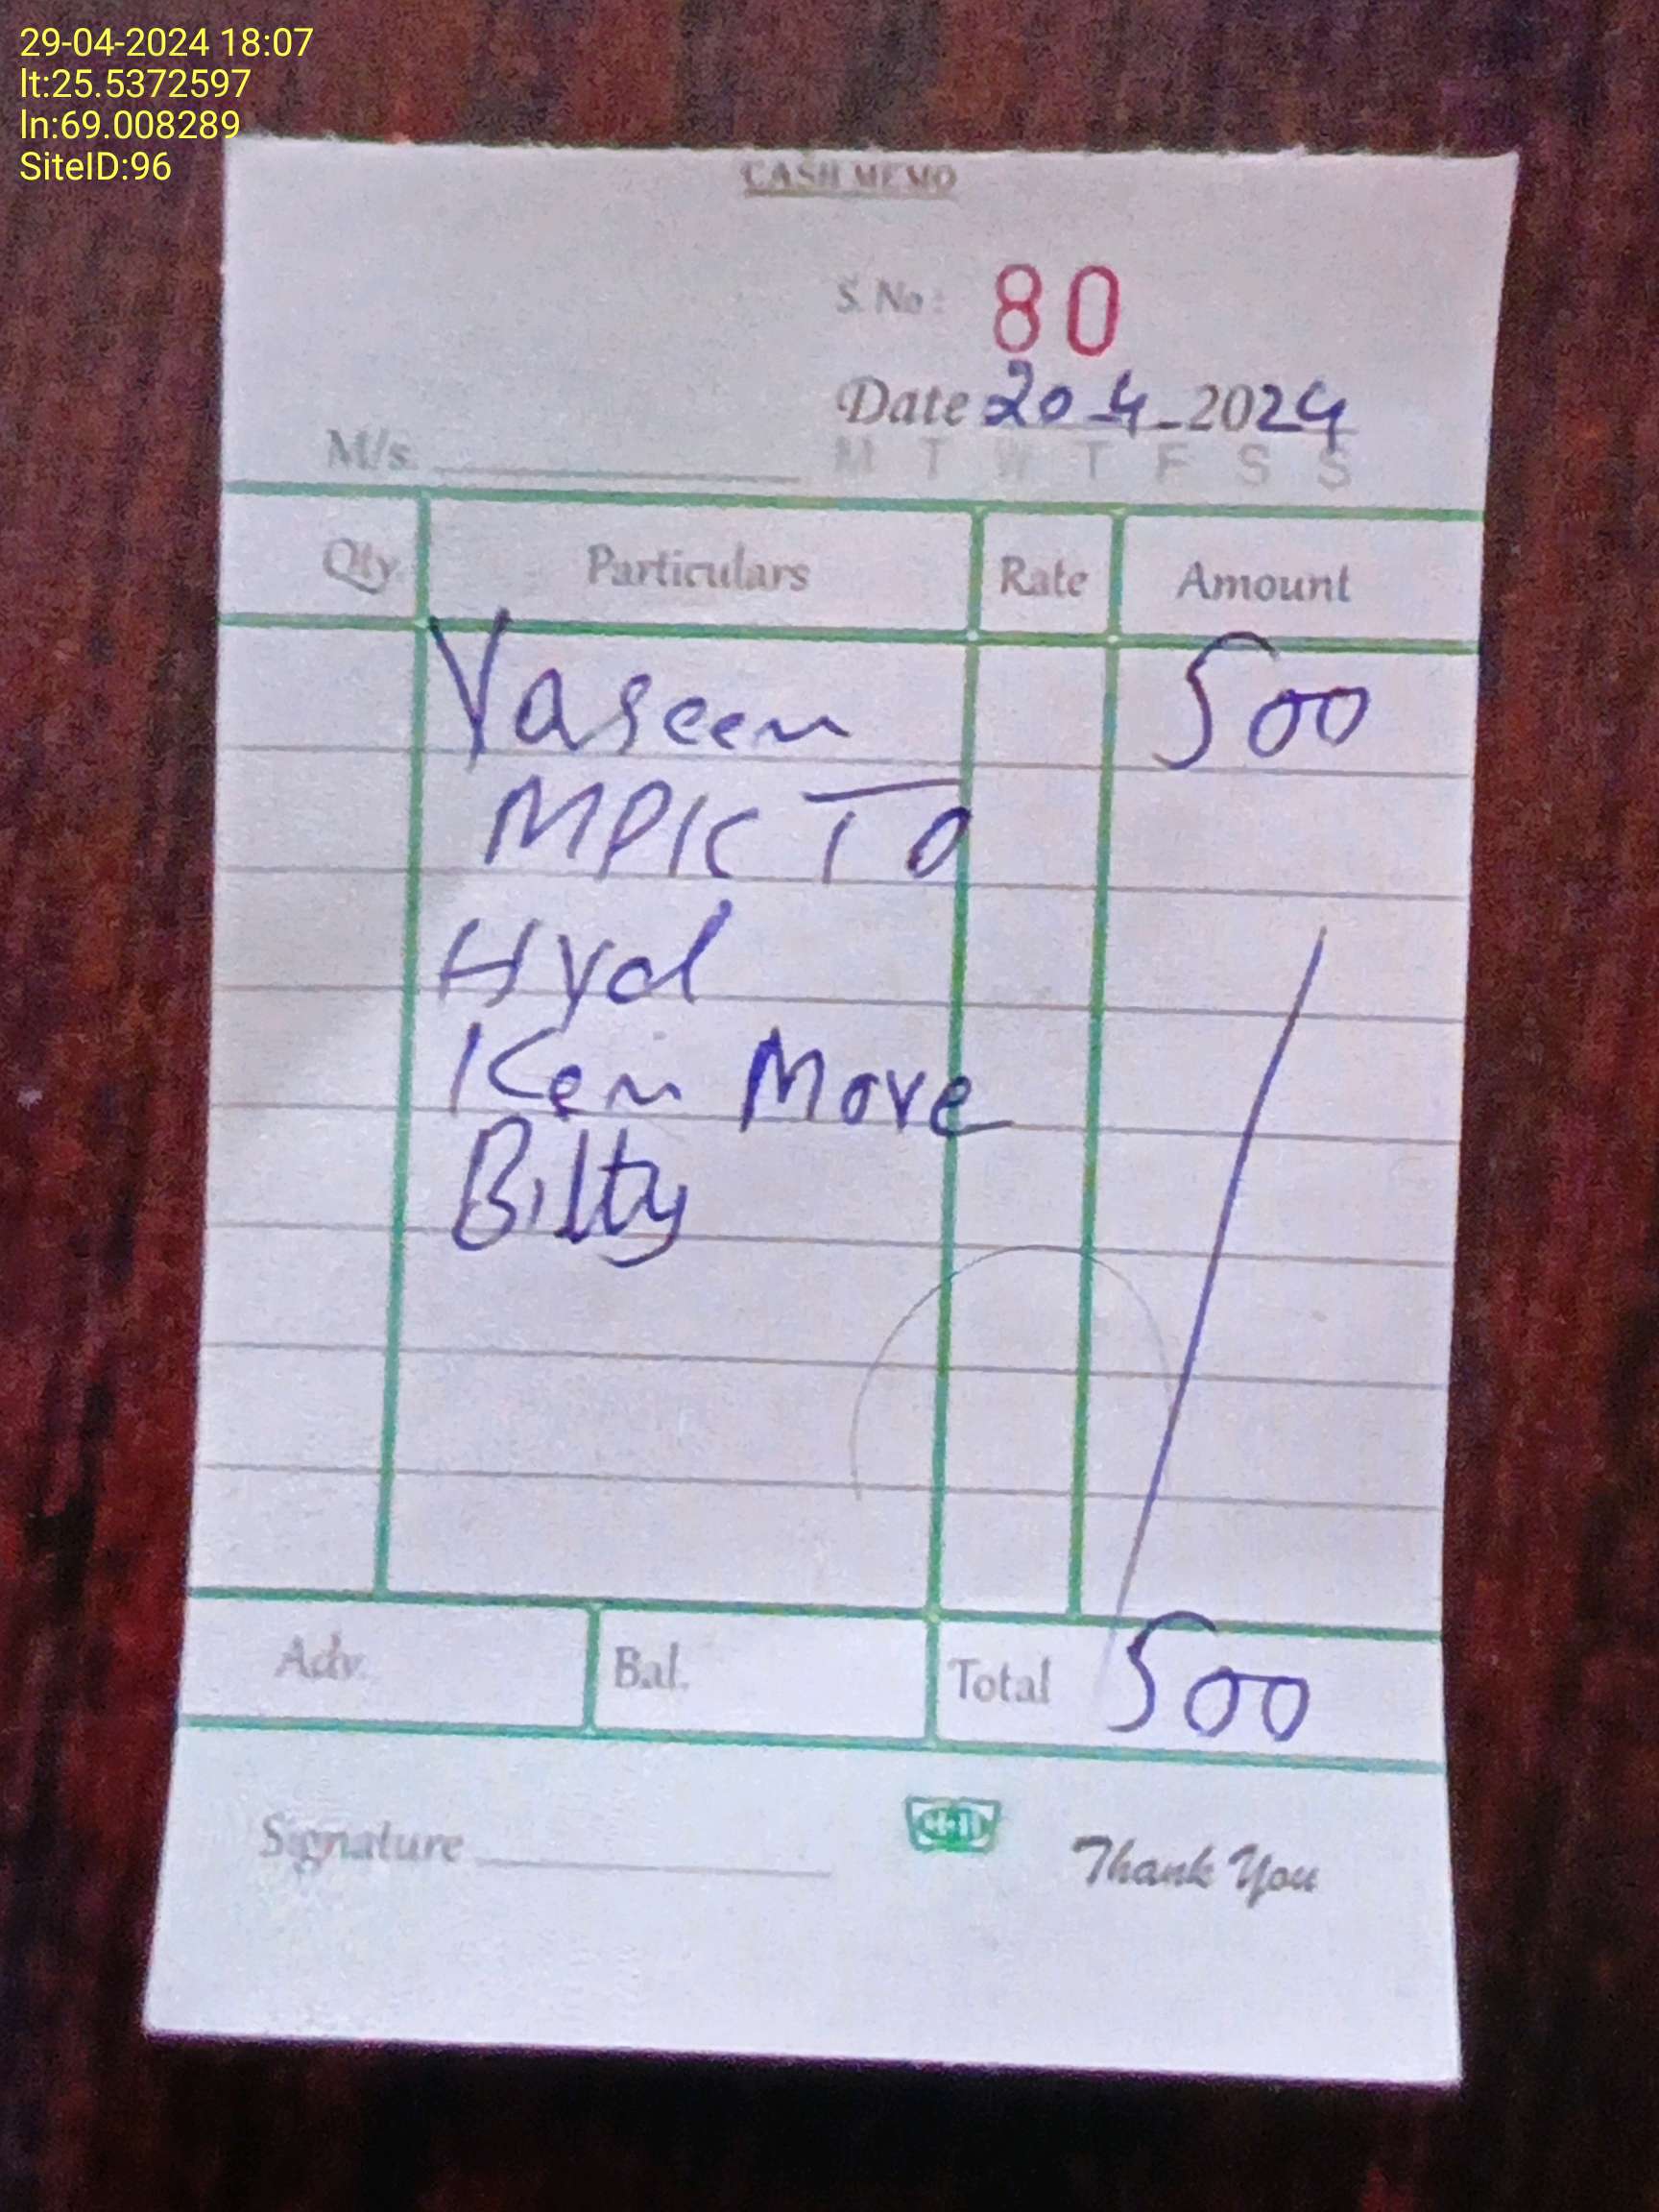 29-04-2024 18:07
lt:25.5372597
ln:69.008289
SiteID:96
CASH MEMO
S. No: 80
Date 20-4-2024
M/s.
M T W T F S S
Qty. Particulars Rate Amount
Yaseen 500
MPK TO
Hyd
Ken Move
Bilty
Adv. Bal. Total 500
Signature
Thank You